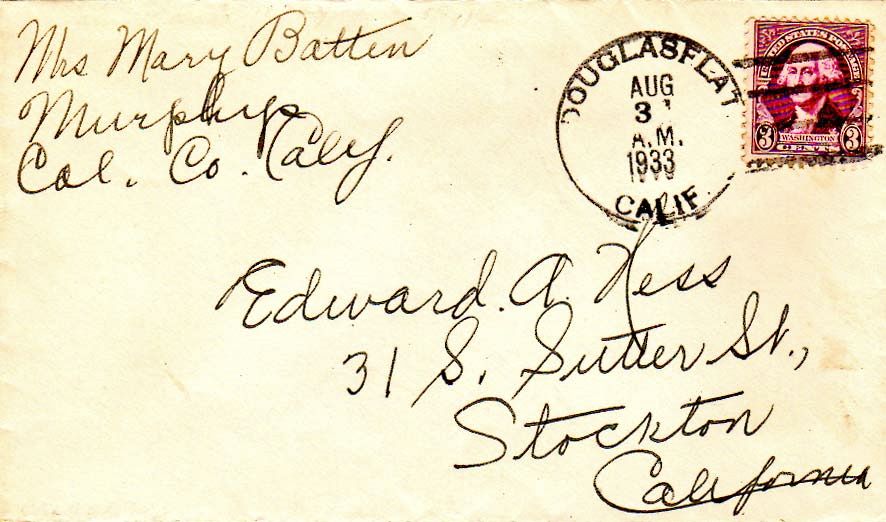 Mrs Mary Batten
Murphys
Cal. Co. Calif.
DOUGLASFLAT
AUG
3
A.M.
1933
CALIF.
UNITED STATES POSTAGE
WASHINGTON
3 3
CENTS
Edward. A. Hess
31 S. Sutter St.,
Stockton
California